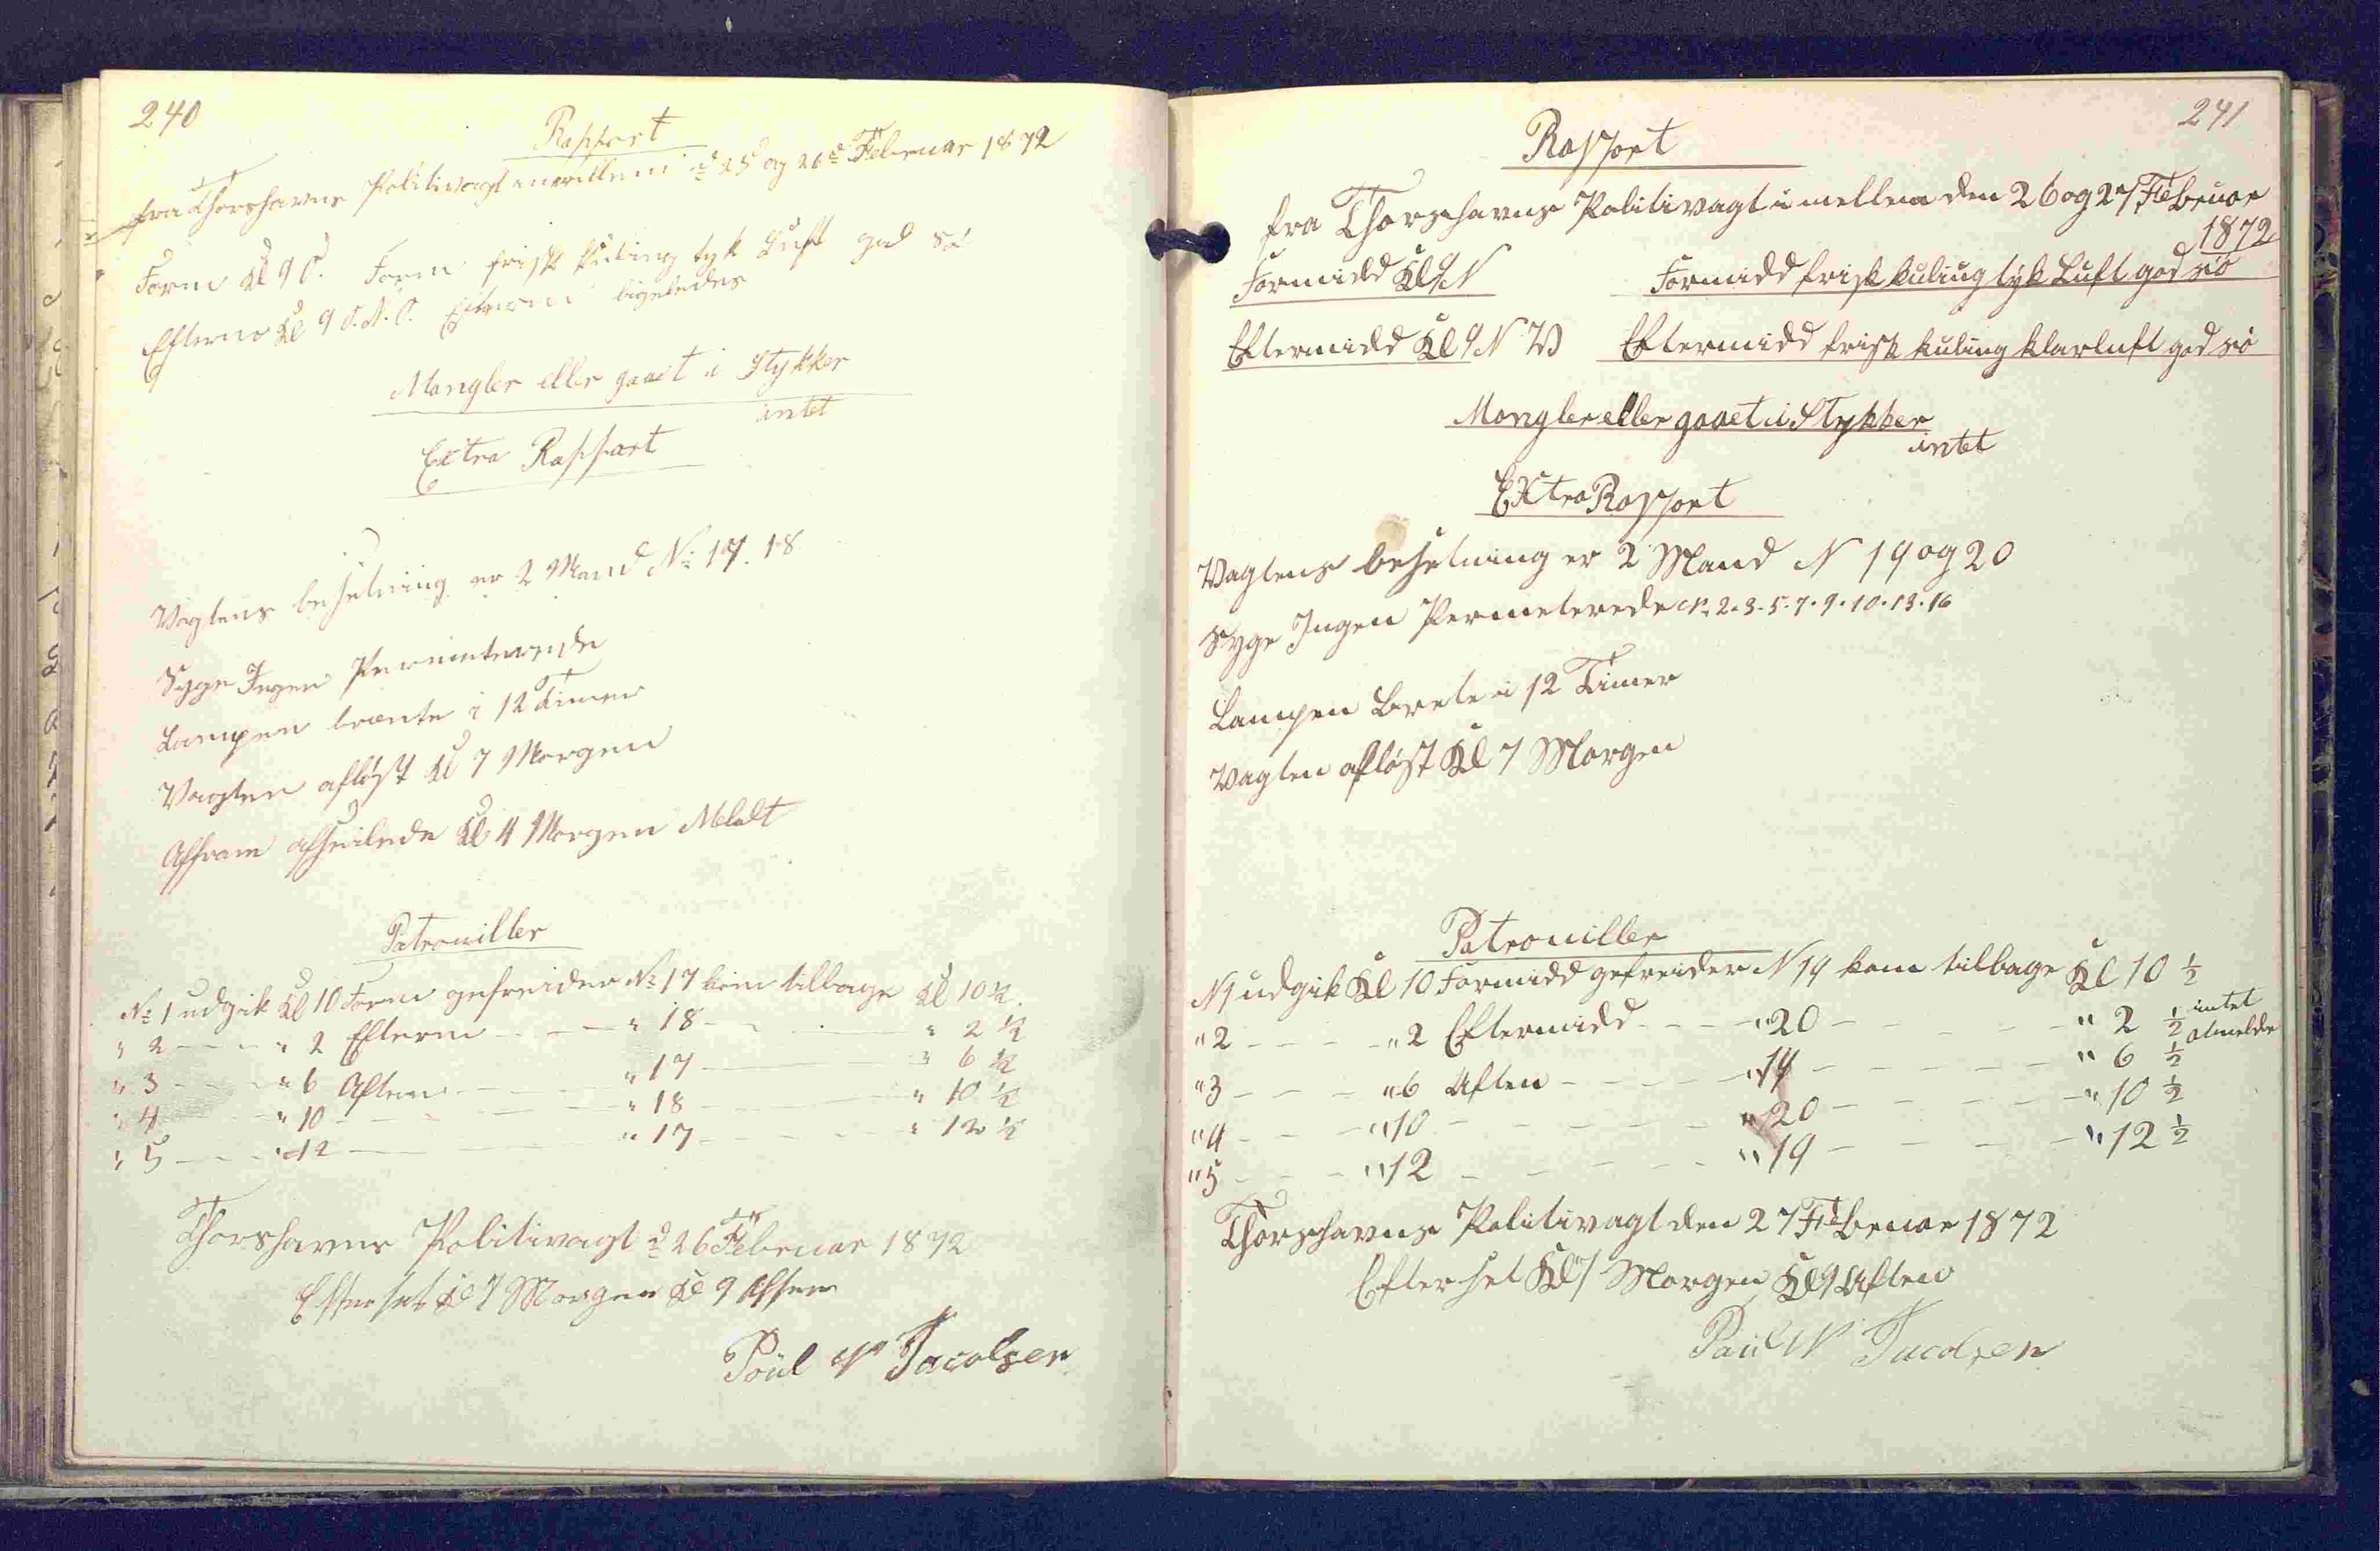 240
Rapport
fra Thorshavns Politivagt imellem d 25 og 26d Februar 1872
Form Kl 9 O. Form frisk kuling tyk Luft god Sö
Efterm Kl 9 O.N.O. Efterm ligeledes
Mangler eller gaaet i Stykker
intet
Extra Rapport
Vagtens besetning er 2 Mand No 17. 18
Syge Ingen Permiterede
Lampen brænte i 12 Timer
Vagten afløst Kl 7 Morgen
afseilede Kl 4 Morgen Meldt
Patrouiller
No 1 udgik Kl 10 Form gefreider No 17 kom tilbage Kl 10 ½
" 2 - - - " 2 Efterm - - - " 18 - - - " 2 ½
" 3 - - - " 6 Aften - - - " 17 - - - " 6 ½
" 4 - - - " 10 - - - " 18 - - - " 10 ½
" 5 - - - " 12 - - - " 17 - - - " 12 ½
Thorshavns Politivagt d 26 Februar 1872
Efterset Kl 7 Morgen Kl 9 Aften
Poul N Jacobsen
241
Rapport
fra Thorshavns Politivagt i mellem den 26 og 27 Februar
1872
Formidd Kl 9 N Formidd frisk kuling tyk Luft god sö
Eftermidd Kl 9 N W Eftermidd frisk kuling klarluft god sö
Mangler eller gaaet i Stykker
intet
Extra Rapport
Vagtens besetning er 2 Mand N 19 og 20
Syge Ingen Permeterede N. 2. 3. 5. 7. 9. 10. 13. 16
Lampen Brete i 12 Timer
Vagten afløst Kl 7 Morgen
Patrouiller
N 1 udgik Kl 10 Formidd gefreider N 19 kom tilbage Kl 10 ½
" 2 - - - " 2 Eftermidd - - - " 20 - - - " 2 ½ intet
" 3 - - - " 6 Aften - - - " 19 - - - " 6 ½ atmelde
" 4 - - - " 10 - - - " 20 - - - " 10 ½
" 5 - - - " 12 - - - " 19 - - - " 12 ½
Thorshavns Politivagt den 27 Februar 1872
Efterset Kl 7 Morgen Kl 9 Aften
Poul N Jacobsen